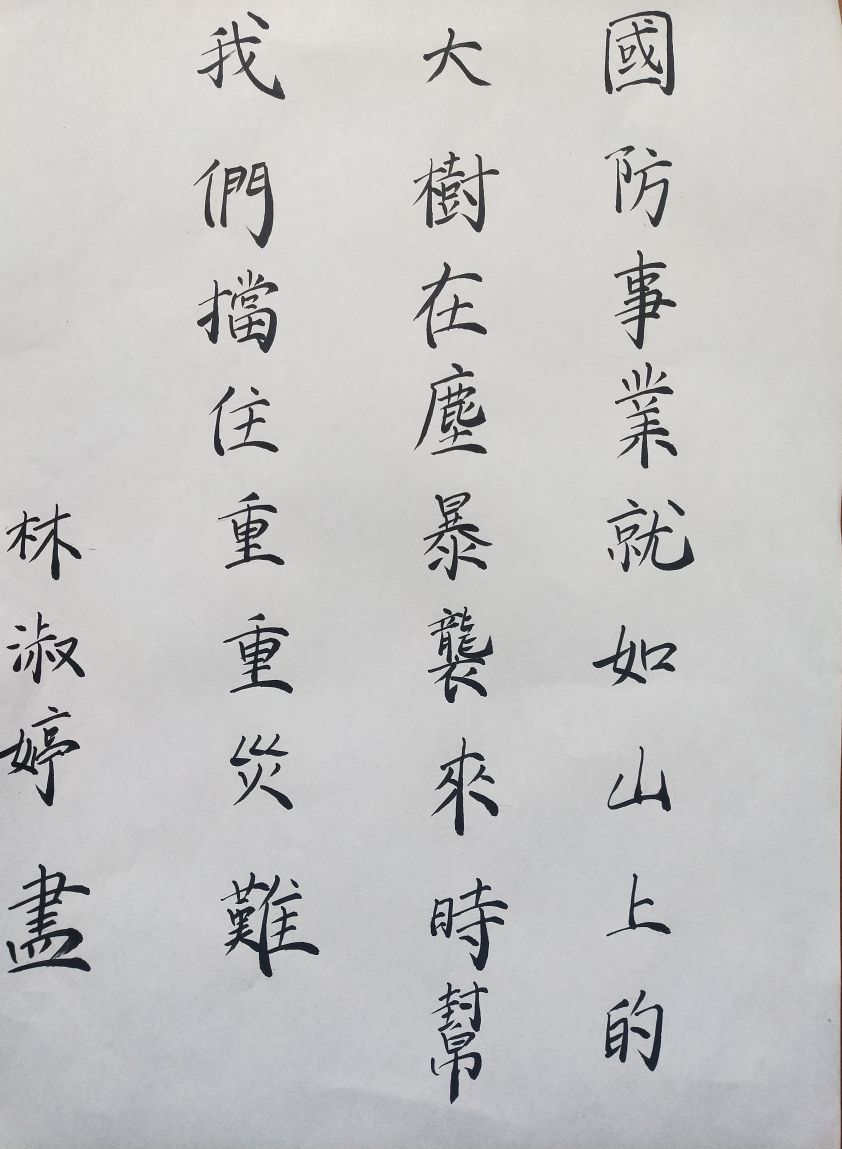 國防事業就如山上的
大樹在塵暴襲來時幫
我們擋住重重災難
林淑婷盡